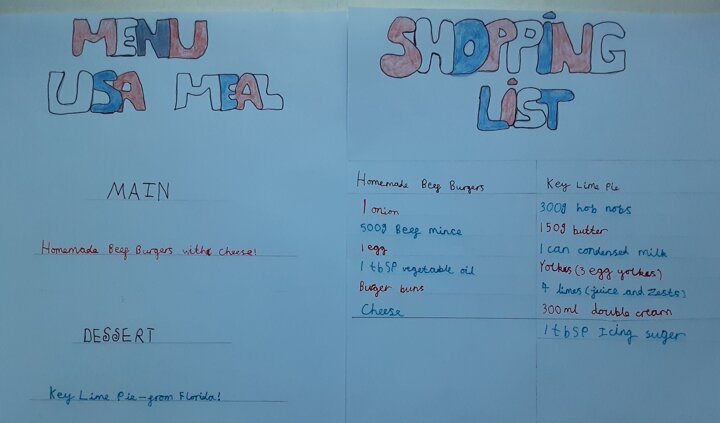 MENU
USA MEAL
MAIN
Homemade Beef Burgers with cheese!
DESSERT
Key Lime Pie-from Florida!
SHOPPING
LIST
Homemade Beef Burgers
1 onion
500g Beef mince
1 egg
1 tbsp vegetable oil
Burger buns
Cheese
Key Lime Pie
300g hob nobs
150g butter
1 can condensed milk
Yolkes (3 egg yolkes)
4 limes (juice and zests)
300ml double cream
1 tbsp Icing suger